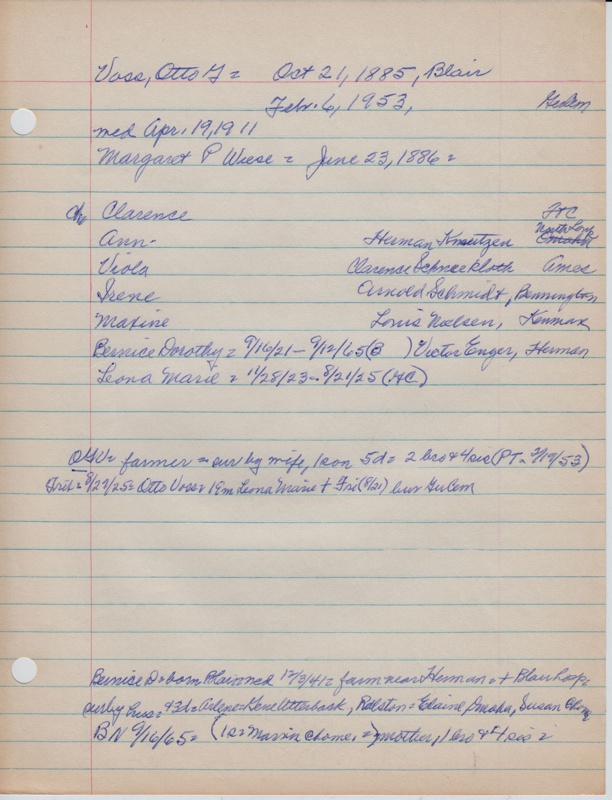 Voss, Otto F = Oct 21, 1885, Blair
Febr. 6, 1953, GuCem
med Apr. 19, 1911
Margaret P Wiese = June 23, 1886 =
ch Clarence FtC
Ann - Herman Kneutzen North Loup
Viola Clarence Schneekloth Ames
Irene Arnold Schmidt, Bennington
Maxine Louis Nielsen, Kennard
Bernice Dorothy = 9/16/21 - 9/12/65 (B ) Victor Enger, Herman
Leona Marie = 11/28/23 - 8/21/25 (GC)
OFV = farmer = sur by wife, 1 son 5d = 2 bro + 4 sis (PT - 2/19/53)
Trib = 8/27/25 = Otto Voss = 19m Leona Marie + Fri (8/21) bur GuCem
Bernice D = born Blair = med 12/3/41 = farm near Herman = + Blair hosp,
sur by hus = 3d = Arlene = Gene Utterback, Ralston = Elaine, Omaha, Susan @home
BN 9/16/65 = (1s = Marvin @home, =) mother, 1 bro + 4 sis =